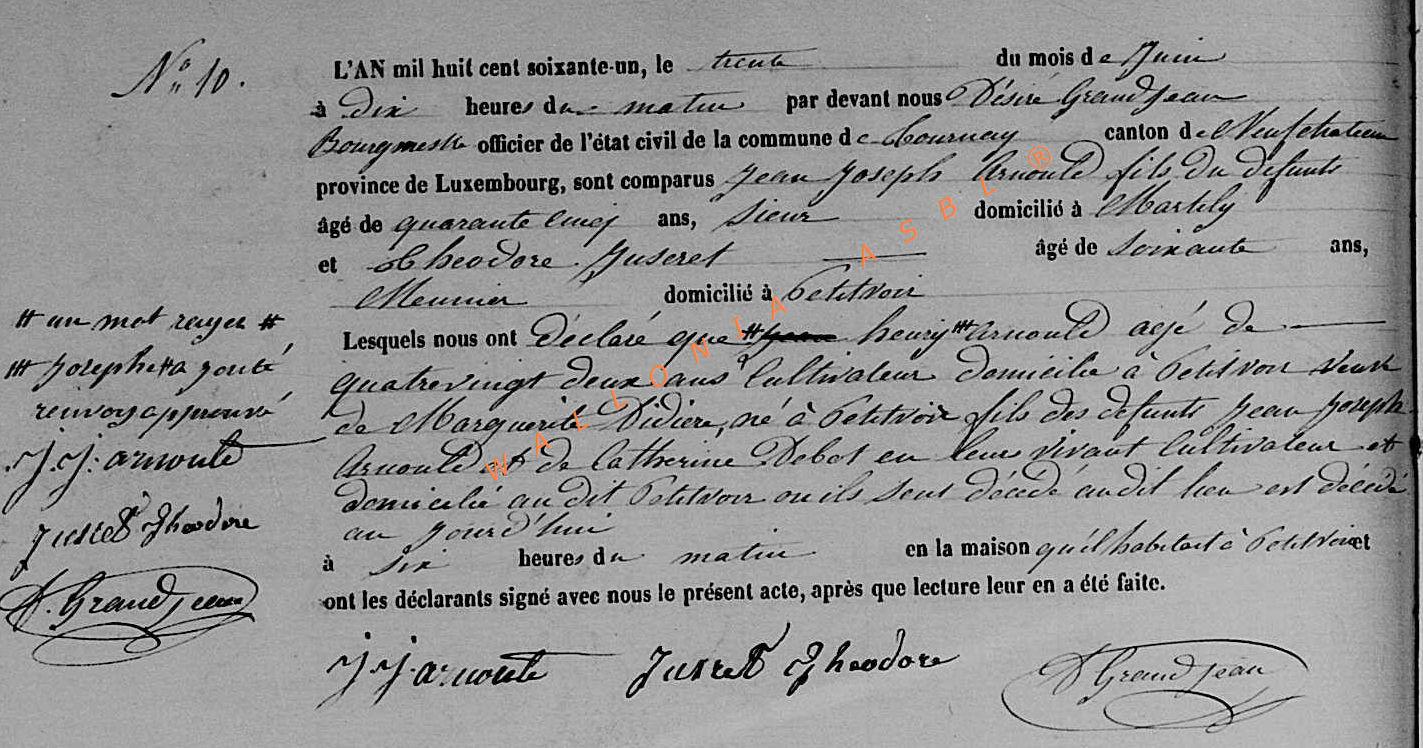 N° 10.
L'AN mil huit cent soixante-un, le trente du mois de Juin
à dix heures du matin par devant nous Désiré Grandjean
Bourgmestre officier de l'état civil de la commune de Tournay canton de Neufchateau
province de Luxembourg, sont comparus Jean Joseph Arnould fils du defunts
âgé de quarante cinq ans, Sieur domicilié à Martily
et Theodore Juseret âgé de soixante ans,
Meunier domicilié à Petitvoir
Lesquels nous ont déclaré que # henry ## Arnould agé de
quatrevingt deux ans Cultivateur domicilié à Petitvoir veuf
de Marguerite Didier, né à Petitvoir fils des defunts Jean Joseph
Arnould et de Catherine Debot en leur vivant Cultivateur et
domicilié au dit Petitvoir ou ils sont décédé audit lieu est décédé
au jourd'hui
à six heures du matin en la maison qu'il habitait à Petitvoir et
ont les déclarants signé avec nous le présent acte, après que lecture leur en a été faite.
# un mot rayer #
## Joseph
renvoy approuvé
J. J. arnould
Jusret Theodore
D. Grandjean
J. J. arnould Jusret Theodore D Grandjean
WALLONIA ASBL ®